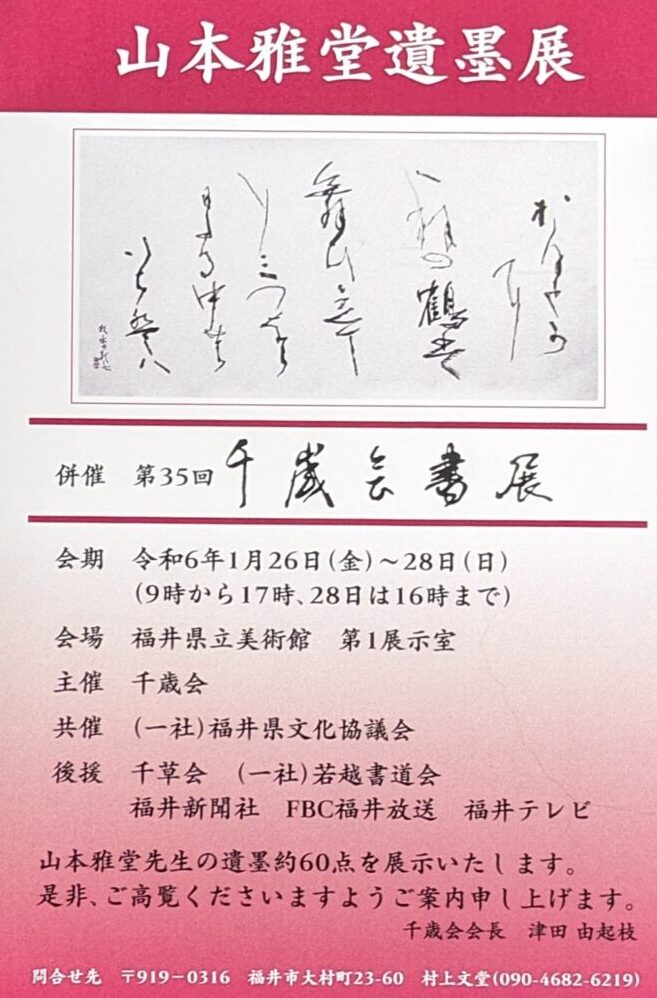 山本雅堂遺墨展
併催 第35回 千歳会書展
会期 令和6年1月26日(金)~28日(日)
(9時から17時、28日は16時まで)
会場 福井県立美術館 第1展示室
主催 千歳会
共催 (一社)福井県文化協議会
後援 千草会 (一社)若越書道会
福井新聞社 FBC福井放送 福井テレビ
山本雅堂先生の遺墨約60点を展示いたします。
是非、ご高覧くださいますようご案内申し上げます。
千歳会会長 津田 由起枝
問合せ先 〒919-0316 福井市大村町23-60 村上文堂(090-4682-6219)